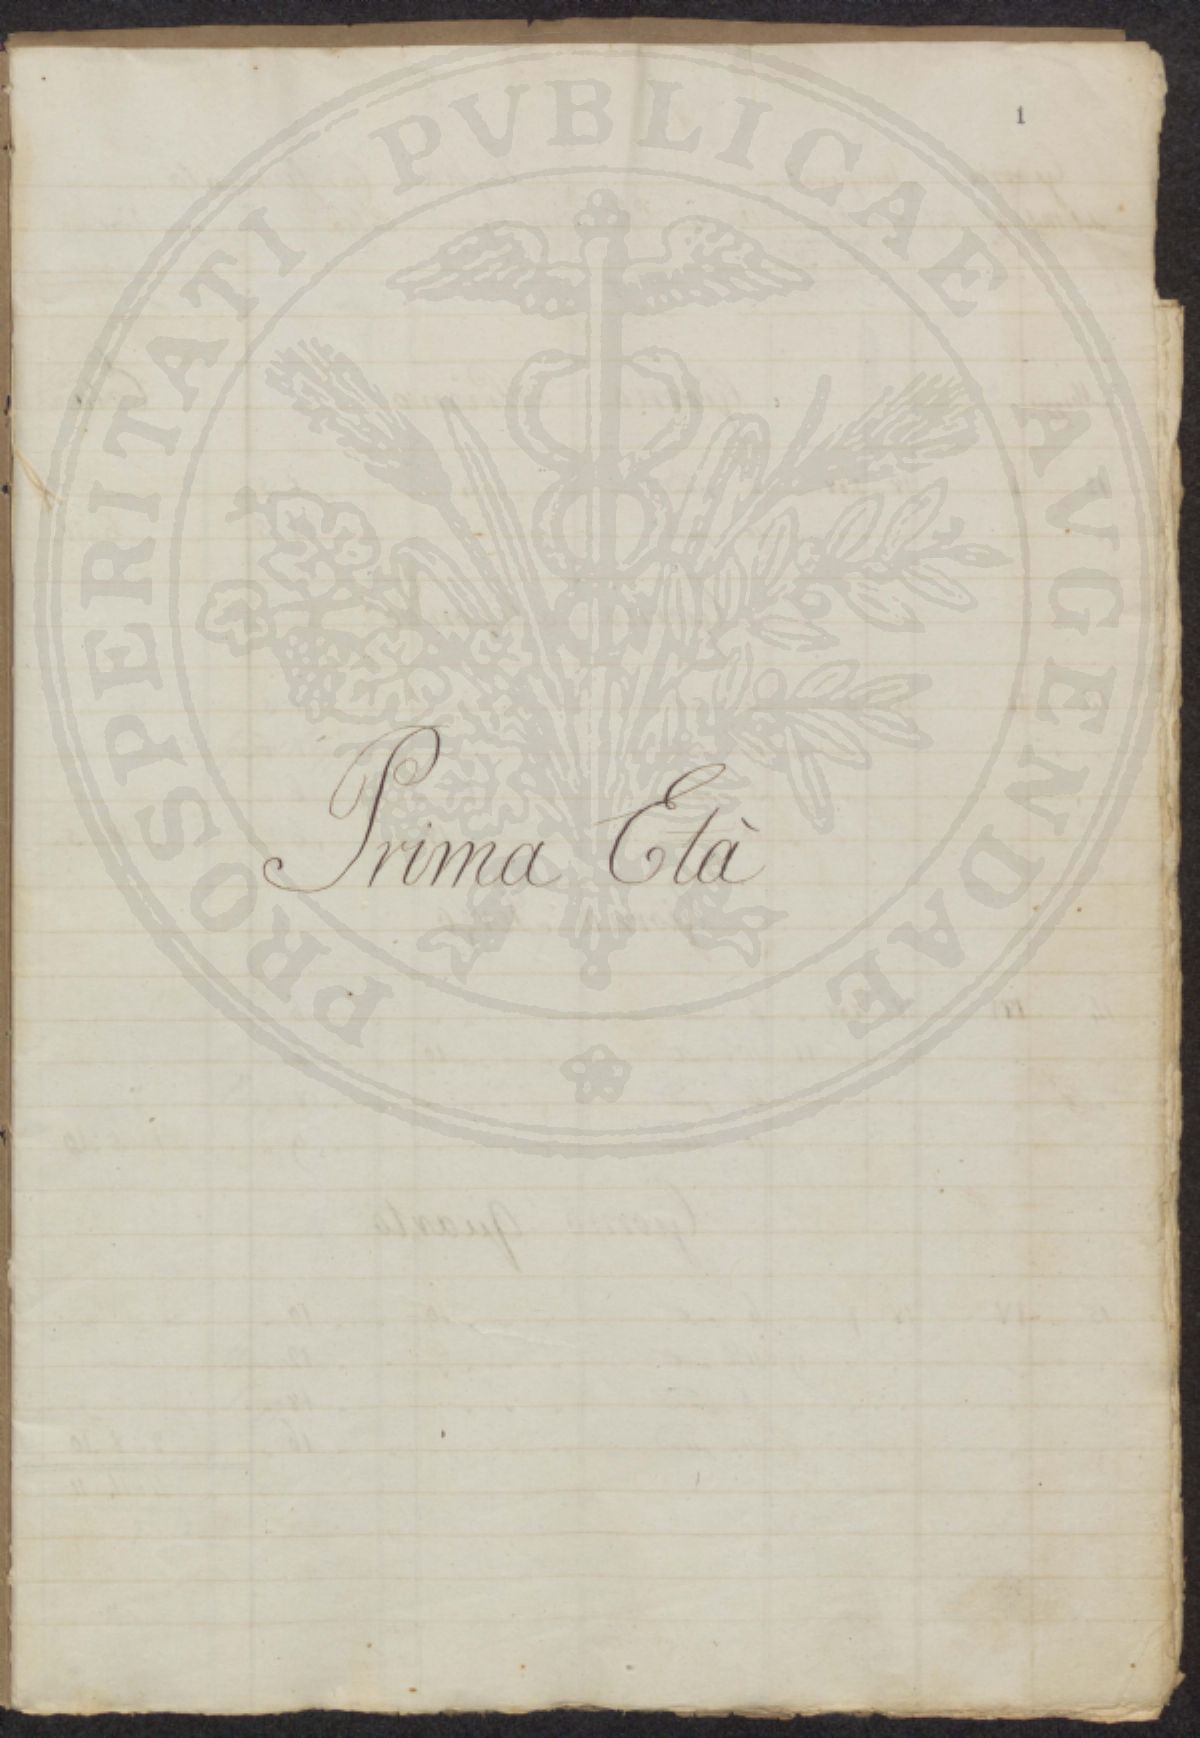 1
PROSPERITATI PVBLICAE AVGENDAE
Prima Età